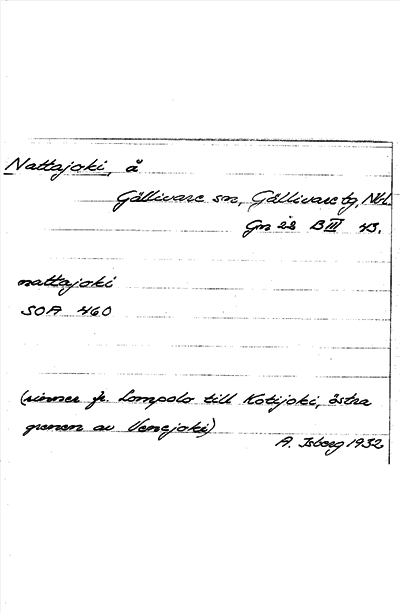 Nattajoki, å
Gällivare sn, Gällivare tg, Nbl.
Gn 28 B III 43.
nattajoki
SOA 460
(rinner fr. Lompolo till Kotijoki, östra
grenen av Venejoki)
A. Isberg 1932